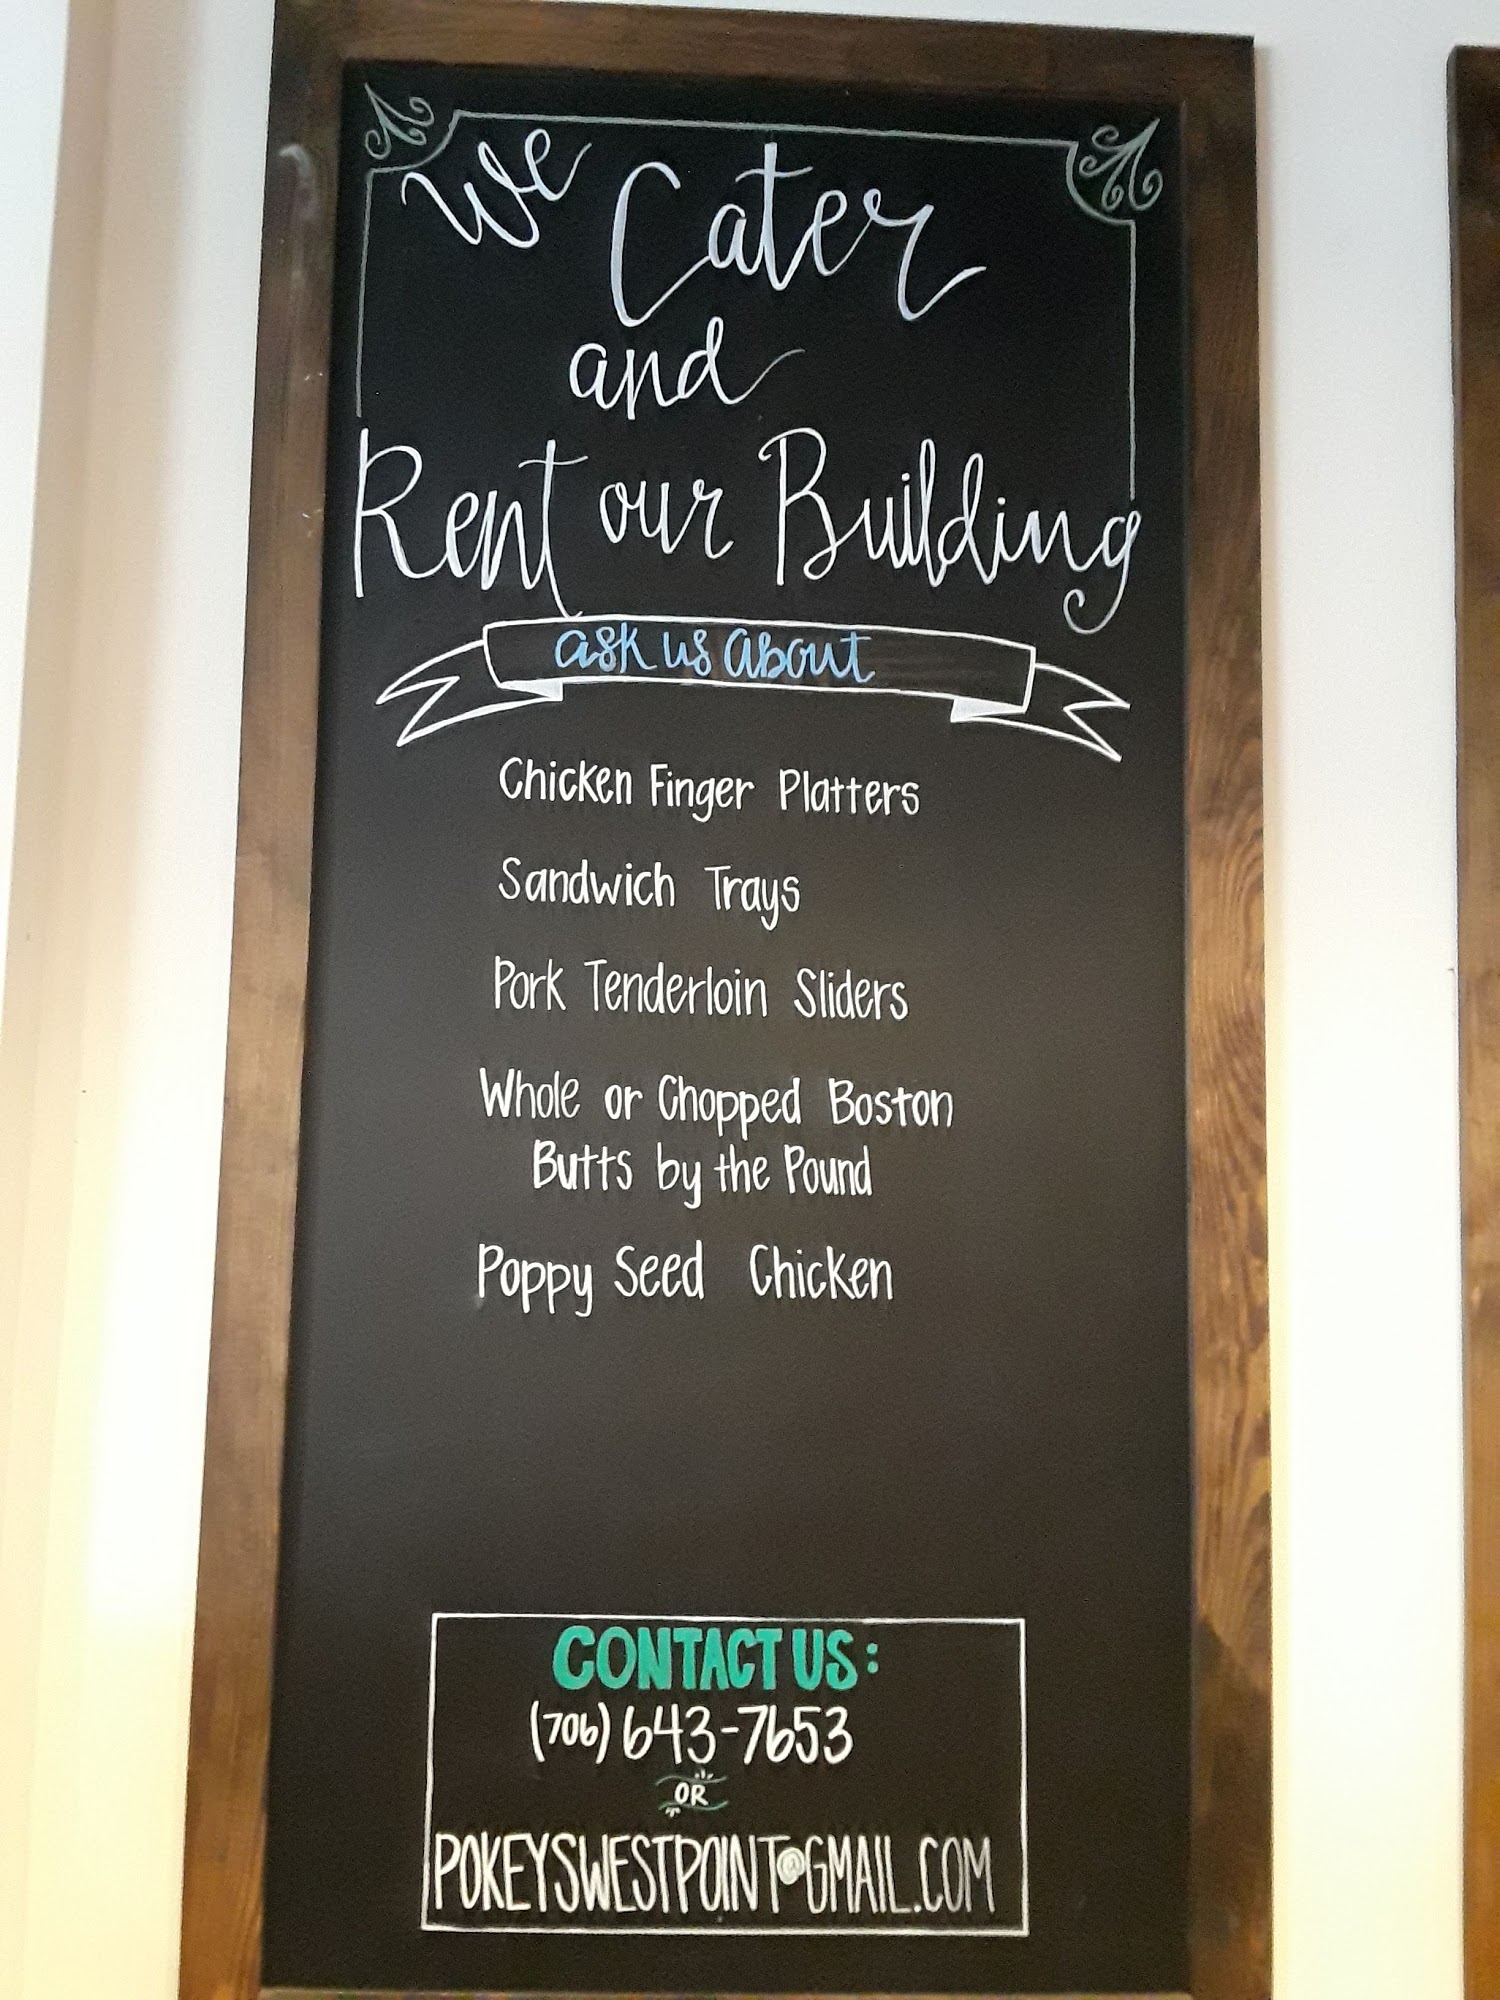 We Cater
and
Rent our Building
ask us about
Chicken Finger Platters
Sandwich Trays
Pork Tenderloin Sliders
Whole or Chopped Boston
Butts by the Pound
Poppy Seed Chicken
CONTACT US:
(706) 643-7653
OR
POKEYSWESTPOINT@GMAIL.COM